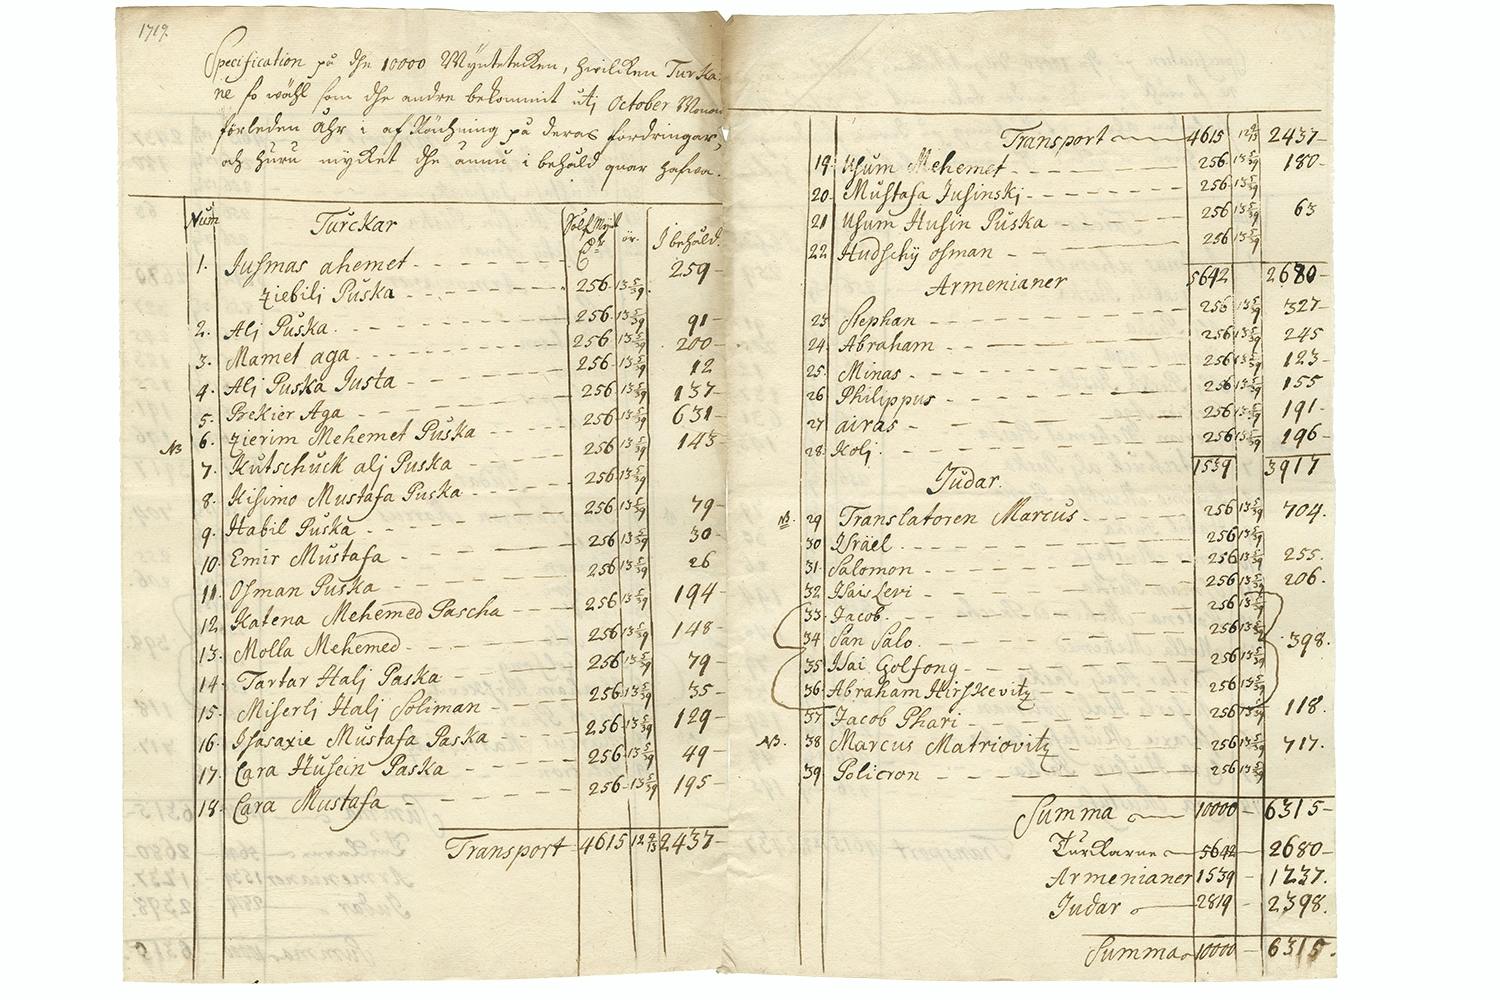 1719.
Specification på dhe 10000 Myntetecken, hwilcken Turka-
ne so wähl som dhe andre bekommit utj October Monat
förleden åhr i afRächning på deras fordringar,
och huru mycket dhe ännu i behåld quar hafwa.
Num Turckar Sölf Mynt ör. I behåld.
1. Jusmas ahemet 259-
ziebilj Puska 256 13 5/39
2. Alj Puska 256 13 5/39 91-
3. Mamet aga 256 13 5/39 200-
4. Alj Puska Justa 256 13 5/39 12
5. Prekier Aga 256 13 5/39 137-
6. zierim Mehemet Puska 256 13 5/39 631-
NB 7. Kutschuck alj Puska 256 13 5/39 143-
8. Kisimo Mustafa Puska 256 13 5/39
9. Habil Puska 256 13 5/39 79-
10. Emir Mustafa 256 13 5/39 30-
11. Osman Puska 256 13 5/39 26
12. Katena Mehemed Pascha 256 13 5/39 194-
13. Molla Mehemed 256 13 5/39 148-
14. Tartar Halj Paska 256 13 5/39 79-
15. Miserlj Halj Soliman 256 13 5/39 35-
16. Isasaxie Mustafa Paska 256 13 5/39 129-
17. Cara Husein Paska 256 13 5/39 49-
18. Cara Mustafa 256 13 5/39 195-
Transport 4615 12 4/13 2437-
Transport 4615 12 4/13 2437-
19. Usum Mehemet 256 13 5/39 180-
20. Mustafa Jusinskj 256 13 5/39
21 Usum Husin Puska 256 13 5/39 63
22 Hudschÿ osman 256 13 5/39
Armenianer 5642 2680-
23 Stephan 256 13 5/39 327-
24. Abraham 256 13 5/39 245
25. Minas 256 13 5/39 123-
26 Philippus 256 13 5/39 155
27 airas 256 13 5/39 191-
28. Kolj 256 13 5/39 196-
1539 3917
Judar.
NB. 29 Translatoren Marcus 256 13 5/39 704.
30 Israel 256 13 5/39
31. Salomon 256 13 5/39 255.
32 Isais Levi 256 13 5/39 206.
33. Jacob 256 13 5/39
34 San Salo 256 13 5/39 398.
35 Isai Golfong 256 13 5/39
36. Abraham Hirskevitz 256 13 5/39
37 Jacob Phari 256 13 5/39 118.
NB. 38 Marcus Matriovitz 256 13 5/39 717.
39 Policron 256 13 5/39
Summa 10000 - 6315-
Turckarne 5642 - 2680-
Armenianer 1539 - 1237.
Judar 2819 - 2398.
Summa 10000 - 6315.